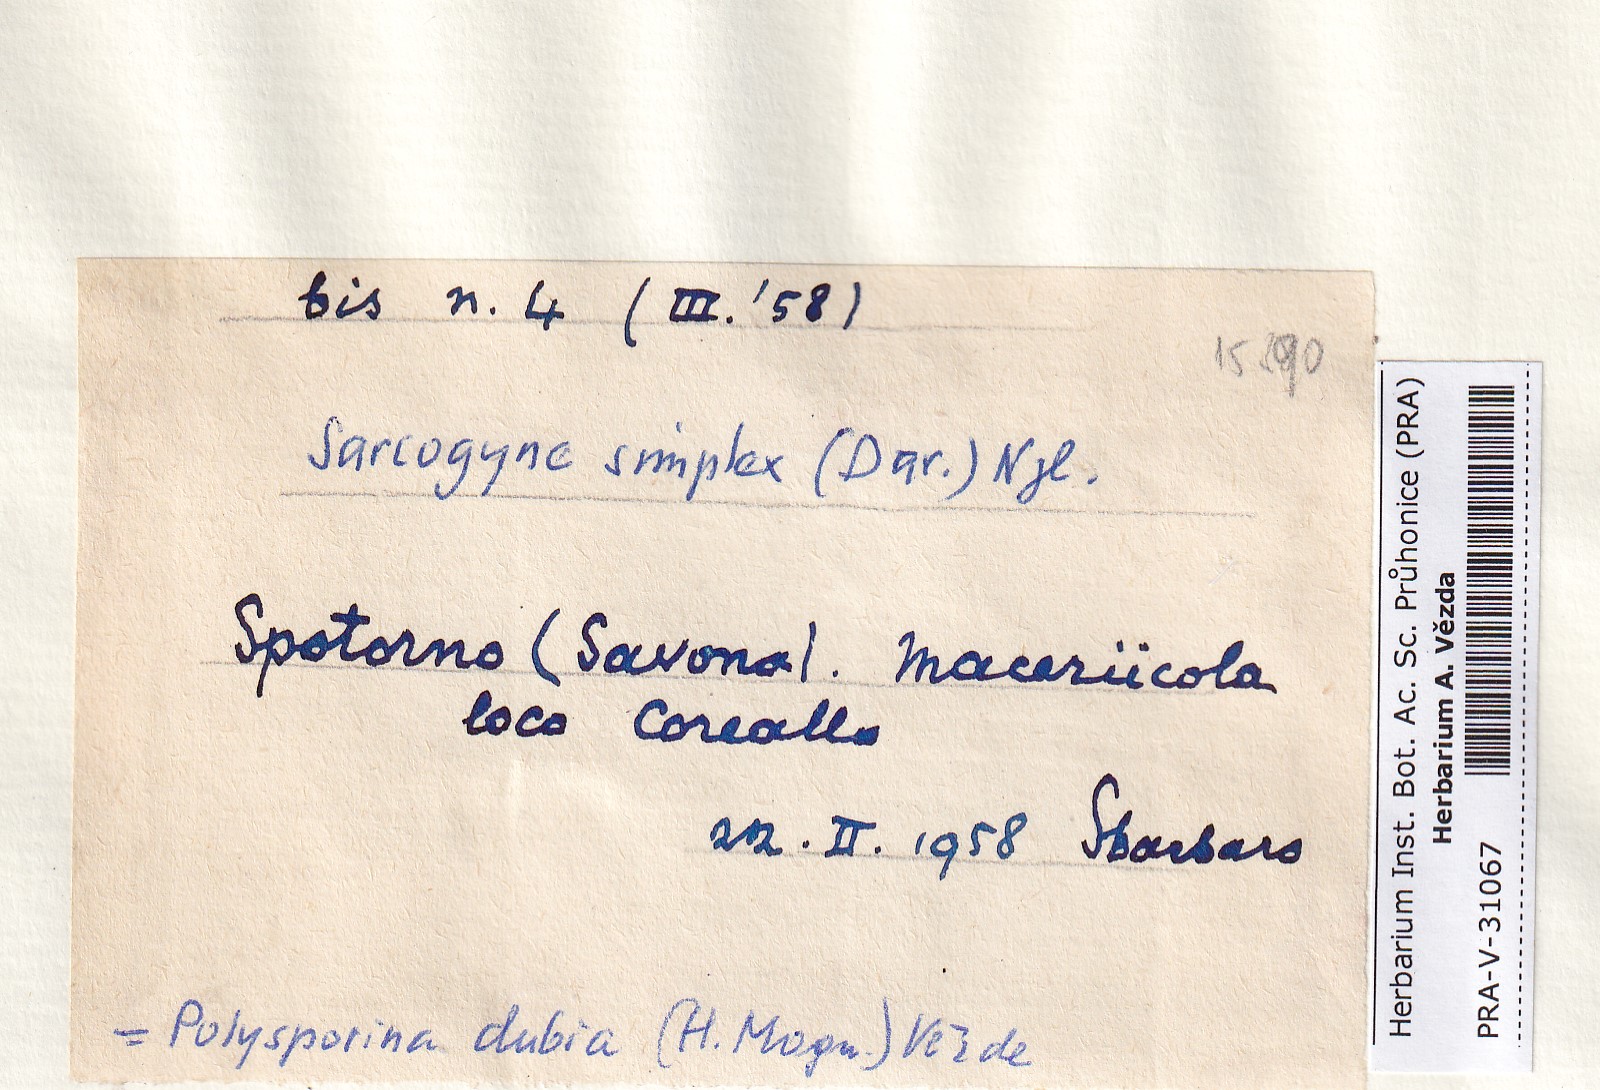 bis n. 4 (III. '58)
15
Sarcogyne simplex (Dav.) Nyl.
Spotorno (Savona). Maceriicola
loco Coreallo
22. II. 1958 Sbarbaro
= Polysporina dubia (H. Magn.) Vězda
Herbarium Inst. Bot. Ac. Sc. Průhonice (PRA)
Herbarium A. Vězda
PRA-V-31067